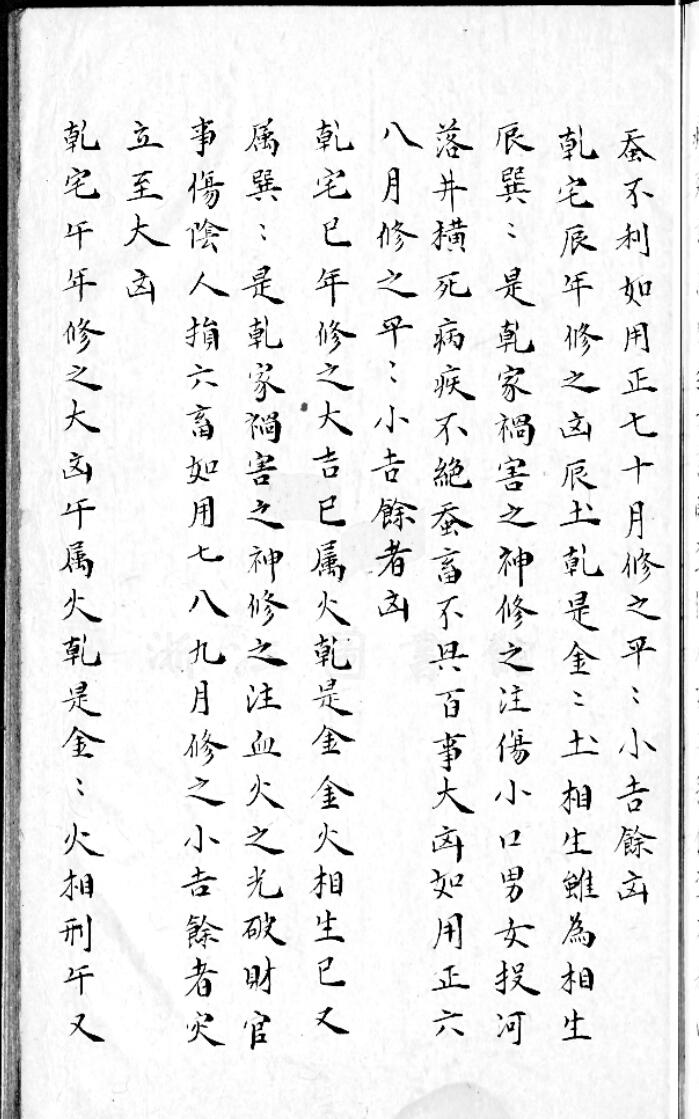 蚕不利如用正七十月修之平〻小吉餘凶
乹宅辰年修之凶辰土乹是金〻土相生雖為相生
辰巽〻是乹家禍害之神修之注傷小口男女投河
落井橫死病疾不絕蚕畜不具百事大凶如用正六
八月修之平〻小吉餘者凶
乹宅巳年修之大吉巳属火乹是金金火相生巳又
属巽〻是乹家禍害之神修之注血火之光破財官
事傷陰人損六畜如用七八九月修之小吉餘者灾
立至大凶
乹宅午年修之大凶午属火乹是金〻火相刑午又